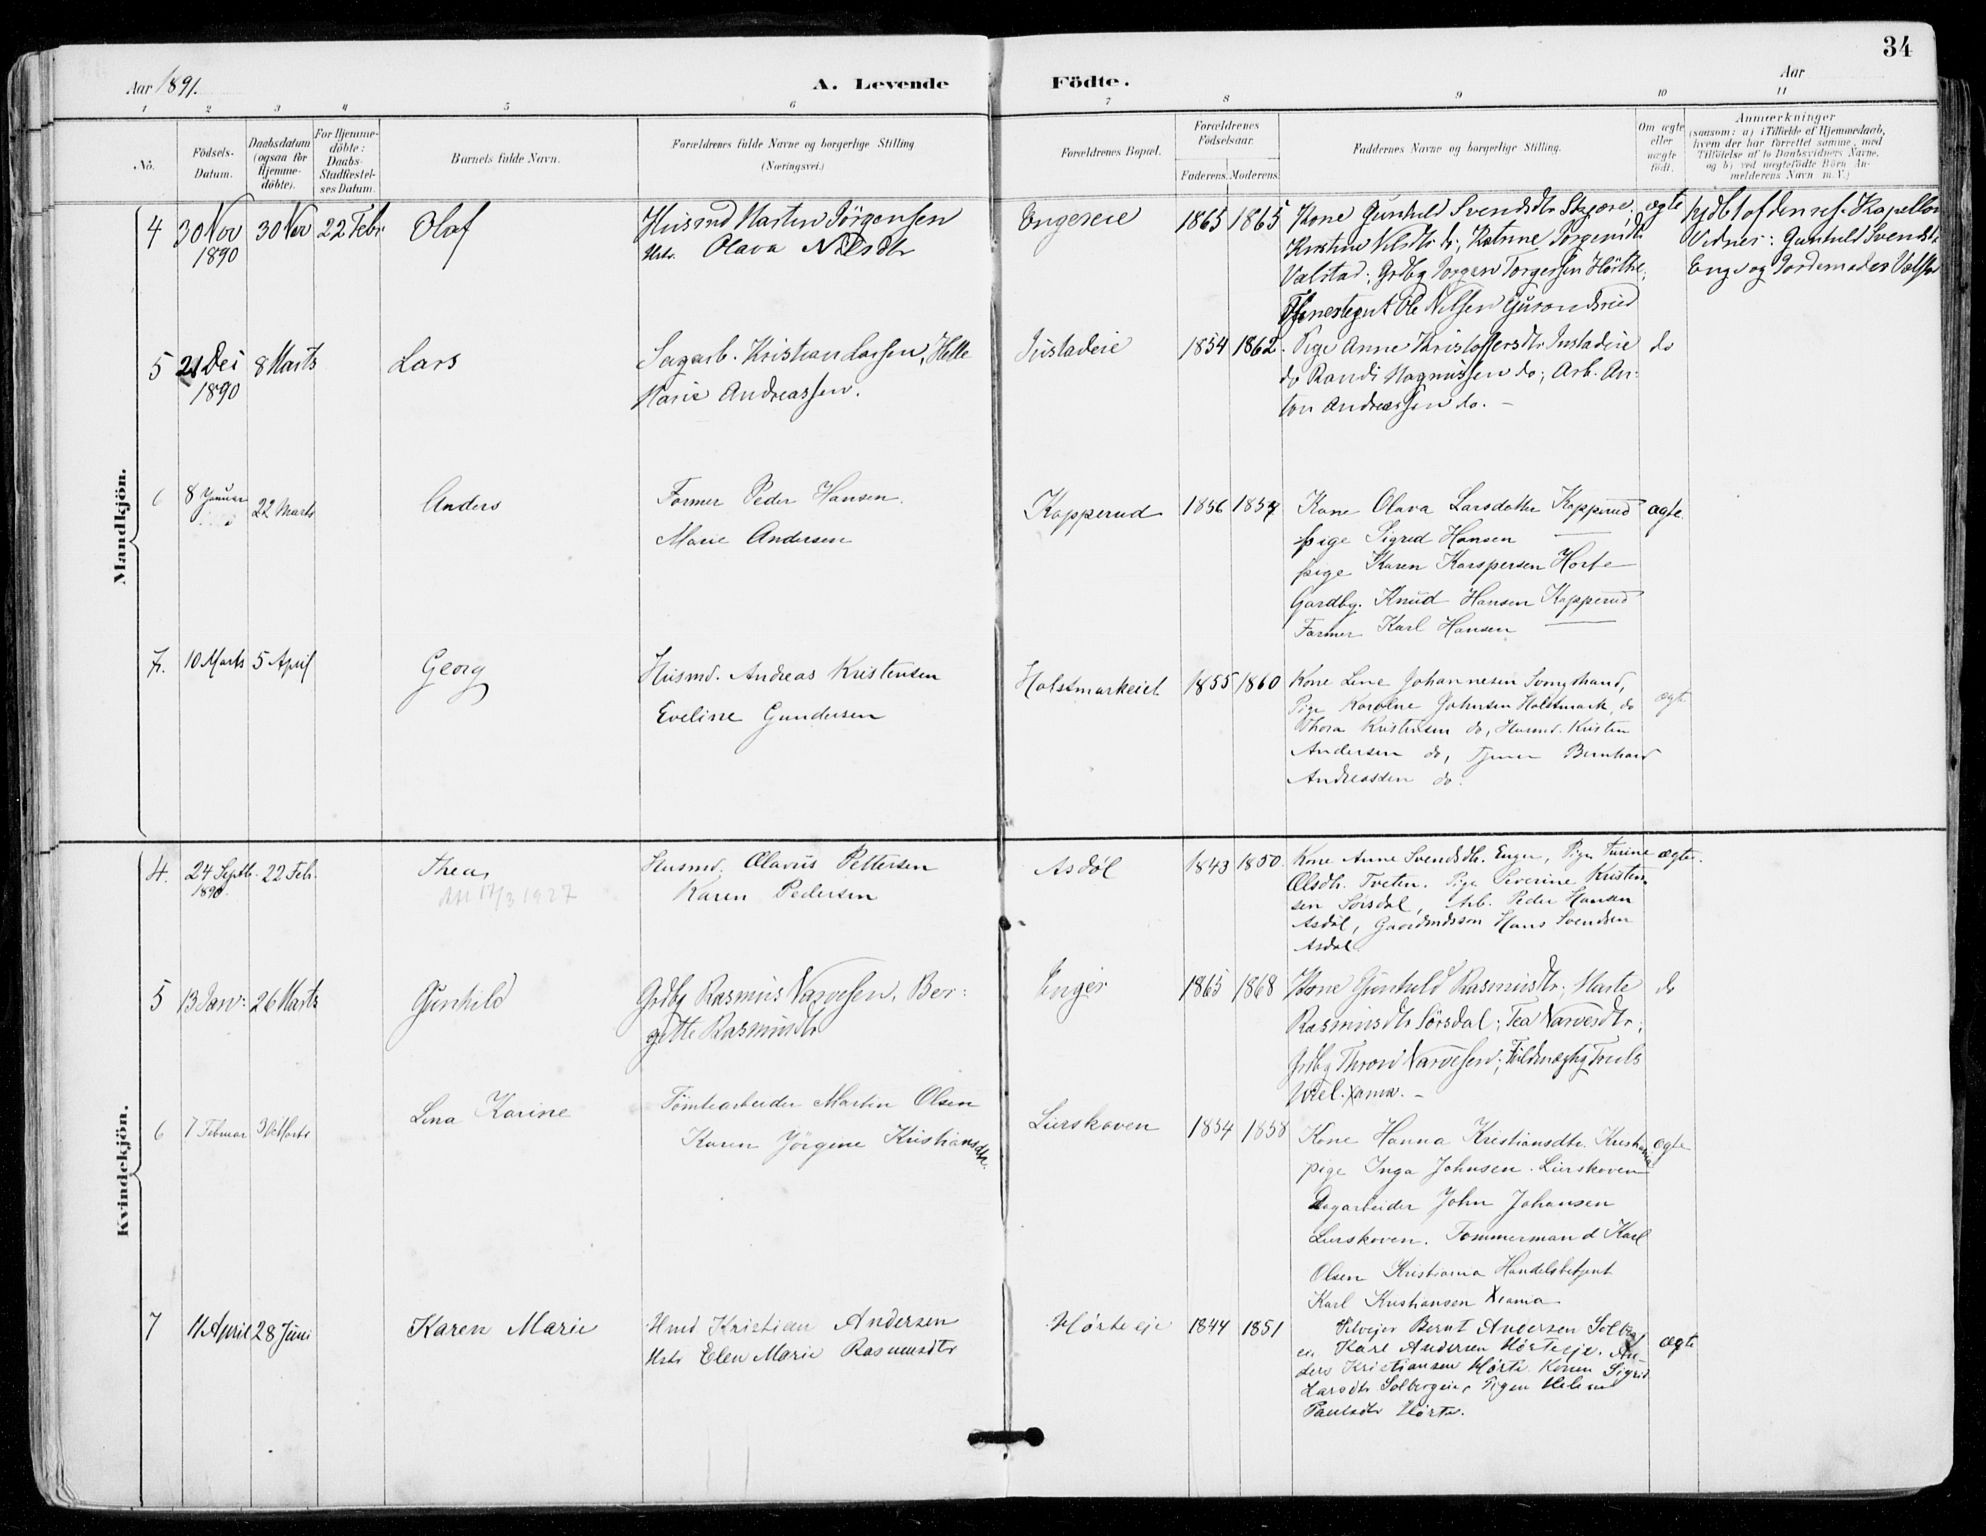 34
Aar 1891.
A. Levende Födte.
Aar
1 2 3 4 5 6 7 8 9 10 11
No.
Födsels-Datum.
Daabsdatum (ogsaa for Hjemme-döbte).
For Hjemme-döbte: Daabs-Stadfæstel-ses Datum.
Barnets fulde Navn.
Forældrenes fulde Navne og borgerlige Stilling (Næringsvei.)
Forældrenes Bopæl.
Forældrenes Födselsaar.
Faderens. Moderens.
Faddernes Navne og borgerlige Stilling.
Om ægte eller uægte födt.
Anmærkninger
(saasom: a) i Tilfælde af Hjemmedaab,
hvem der har forrettet samme, med
Tilföielse af to Daabsvidners Navne,
og b) ved uegtefödte Börn An-
melderens Navn m. V.)
Mandkjön.
4 30 Nov 1890 30 Nov 22 Febr Olaf
Husmd Martin Jörgensen
Hstr. Olava Nilsdtr
Engereie 1865 1865
Kone Gunhild Svendsdtr
Kristine Nilsdtr do; Katrine Torgersdtr
Valstad; Grdbg Jorgen Torgersen Hörthe;
Tjenestegut Ole Nilsen
ægte
Vidner: Gunhild Svendsdtr
Enge og Jordemoder
5 21 Dei 1890 8 Marts Lars
Sagarb. Kristian Larsen, Helle
Marie Andreassen.
Justadeie 1854 1862.
Pige Anne Kristoffersdtr Justadeie
do Randi Magnussen do; Arb. An:
ton Andreassen do. -
do
6 8 Januar 22 Marts Anders
Former Peder Hansen.
Marie Andersen
Kopperud 1856 1857
Kone Olava Larsdatter Kopperud
pige Sigrid Hansen
pige Karen Karspersen Horte
Gardbg. Knud Hansen Kopperud
Former Karl Hansen
ægte.
7. 10 Marts 5 April Georg
Husmd. Andreas Kristensen
Eveline Gundersen
Holstmarkeiet 1855 1860
Kone Line Johannesen Svangstrand,
Pige Karoline Johnsen Holstmark, do
Thora Kristensen do, Husmd. Kristen
Andersen do, Tjener Bernhard
Andreassen do.
ægte
Kvindekjön.
4. 24 Septb. 1890. 22 Feb. Thea,
17/3 1927
Husmd. Olavus Pettersen
Karen Pedersen
Asdöl 1843 1850
Kone Anne Svendsdtr. Enger, Pige Turine
Olsdtr. Tveten. Pige Severine Kristen-
sen Sörsdal, Arb. Peder Hansen
Asdöl, Gaardmdssön Hans Svendsen
Asdöl.
ægte.
5 13 Jan: 26 Marts Gunhild
Grdbg Rasmus Narvesen, Ber:
gette Rasmusdtr
Enger 1865 1868
Kone Gunhild Rasmusdtr; Marte
Rasmusdtr Sörsdal; Tea Narvesdtr;
Grdbg Thron Narvesen;
Xania. -
do
6 7 Februar Lina Karine
Tömtearbeider Martin Olsen
Karen Jörgine Kristiansdtr.
Lierskoven 1854 1858
Kone Hanna Kristiansdtr. Kristiania
pige Inga Johnsen. Lierskoven
Dagarbeider John Johansen
Lierskoven. Tommermand Karl
Olsen Kristiania Handelsbetjent
Karl Kristiansen Xiania
ægte
7 11 April 28 Juni Karen Marie
Hmd Kristian Andersen
Hstr Elen Marie Rasmusdtr
Hörteeje 1844 1851
Selvejer Bernt Andersen Solberg
ei, Karl Andersen Hörteeje. An
ders Kristiansen Hörte. Konen Sigrid
Larsdtr Solbergeie, Pigen Helene
Paulsdtr Hörte.
ægte